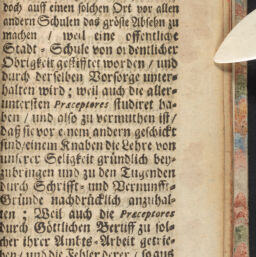 doch auff einen solchen Ort vor allen
andern Schulen das gröste Absehn zu
machen / weil eine offentliche
Stadt-Schule von ordentlicher
Obrigkeit gestifftet worden / und
durch derselben Vorsorge unter-
halten wird; weil auch die aller-
untersten Præceptores studiret ha-
ben / und also zu vermuthen ist /
daß sie vor einem andern geschickt
sind / einem Knaben die Lehre von
unserer Seligkeit gründlich bey-
zubringen und zu den Tugenden
durch Schrifft- und Vernunfft-
Gründe nachdrücklich anzuhal-
ten; Weil auch die Præceptores
durch Göttlichen Beruff zu sol-
cher ihrer Ambts-Arbeit getrie-
ben / und die Fehler derer / so aus